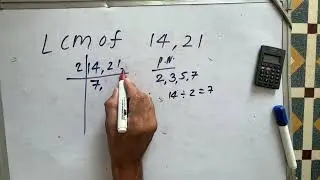 LCM of 14,21
2 14,21,
7,
P.N
2,3,5,7
14÷2=7